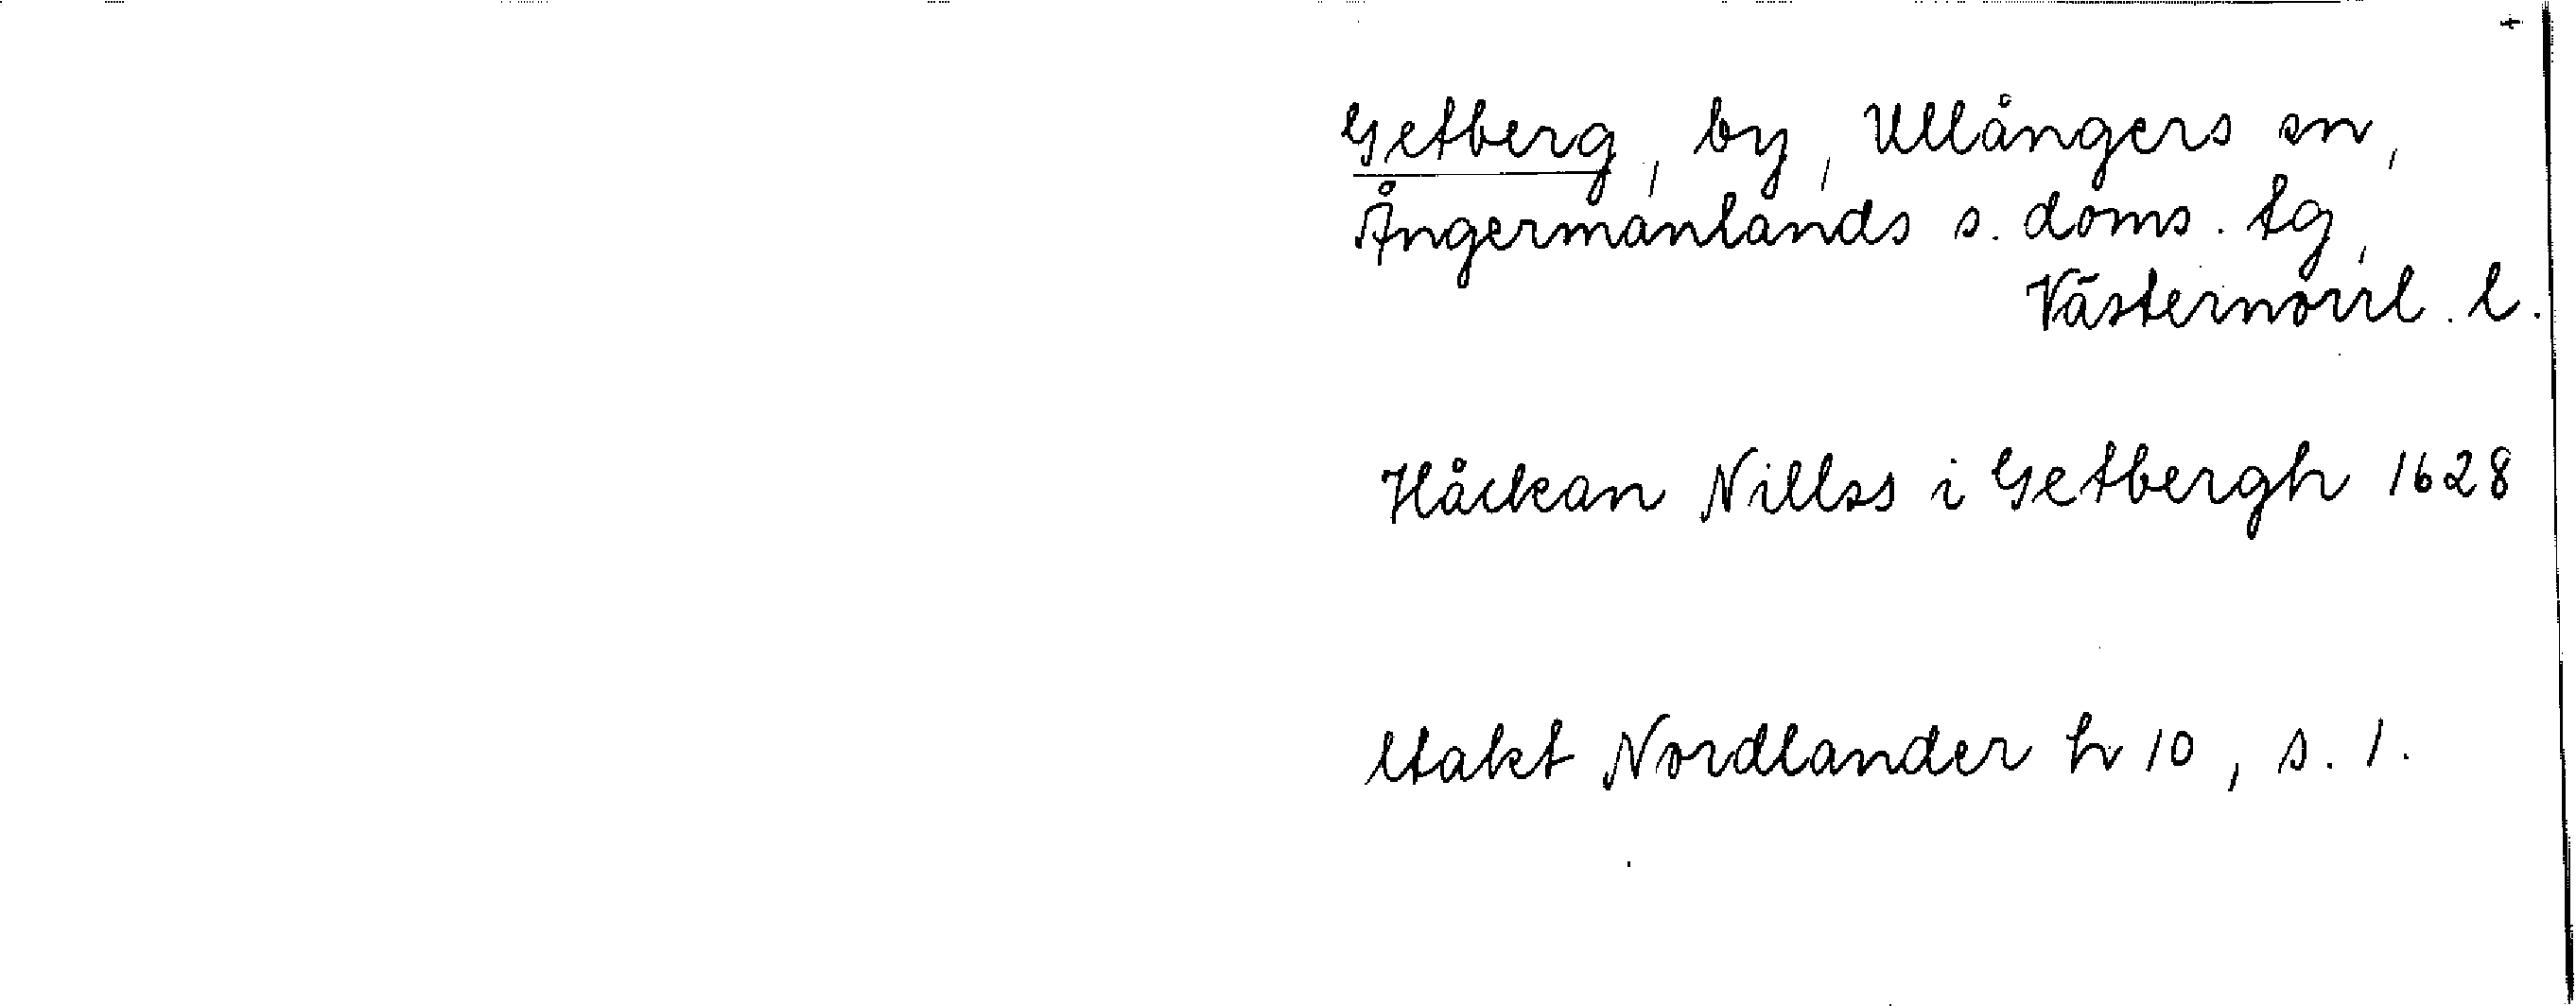 Getberg, by, Ullångers sn,
Ångermanlands s. doms. tg,
Västernorrl. l.
Håckan Nillss i Getbergh 1628
Utakt Nordlander h 10, s. 1.